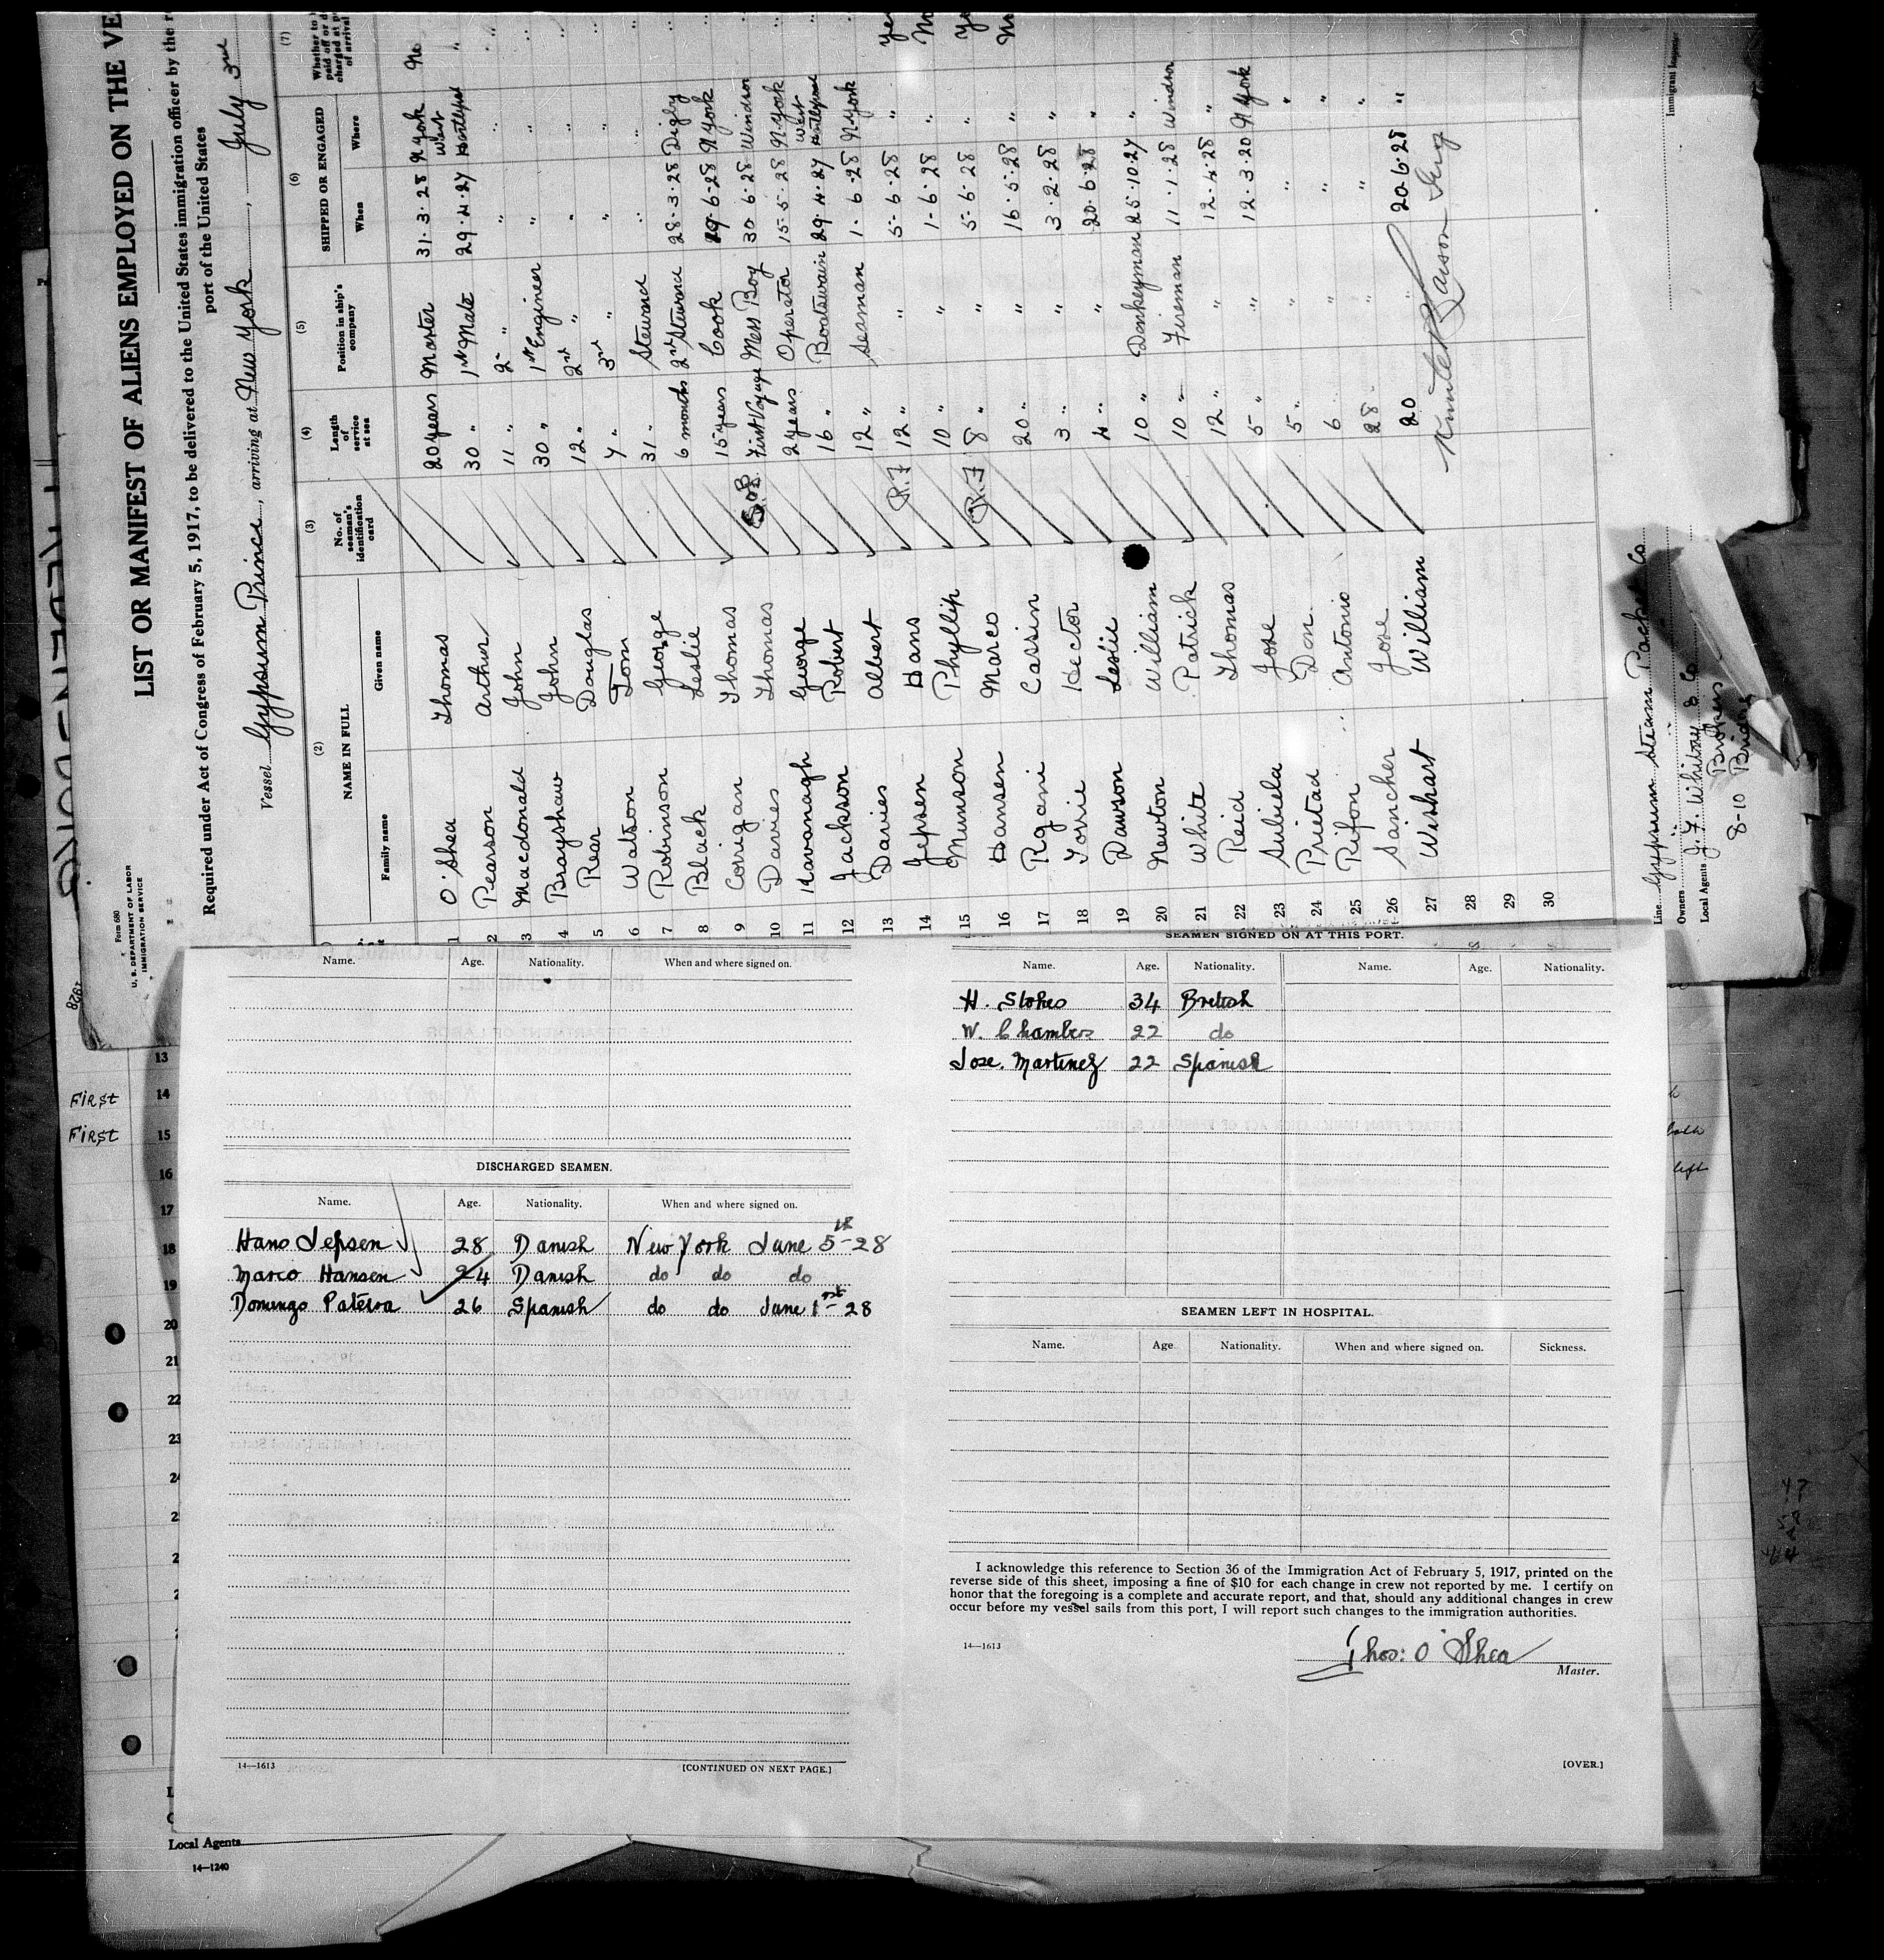 Form 680
U. S. DEPARTMENT OF LABOR
IMMIGRATION SERVICE
LIST OR MANIFEST OF ALIENS EMPLOYED ON THE VE
Required under Act of Congress of February 5, 1917, to be delivered to the United States immigration officer by the r
port of the United States
Vessel Gypsum Prince, arriving at New York, July 3rd
(2) (3) (4) (5) (6) (7)
NAME IN FULL
Family name Given name
No. of seaman's identification card
Length of service at sea
Position in ship's company
SHIPPED OR ENGAGED
When Where
Whether to
paid off or d
charged at p
of arrival
1 O'Shea Thomas 20 years Master 31.3.28 N York No
2 Pearson Arthur 30 " 1st Mate 29.4.27 West Hartlepool "
3 Macdonald John 11 " 2" " "
4 Brayshaw John 30 " 1st Engineer " "
5 Rear Douglas 12 " 2nd " " "
6 Watson Tom 7 " 3rd " " "
7 Robinson George 31 " Steward " "
8 Black Leslie 6 months 2nd Steward 28.3.28 Digby
9 Corrigan Thomas 15 years Cook 29-6-28 N York
10 Davies Thomas First Voyage Mess Boy 30.6.28 Windsor
11 Kavanagh George 2 years Operator 15.5.28 N-york
12 Jackson Robert 16 " Boatswain 29.4.27 West Hartlepool
13 Davies Albert 12 " Seaman 1.6-28 N York
14 Jepsen Hans R.F 12 " " 5-6-28 "
15 Munson Phyllip 10 " " 1-6-28 " No
16 Hansen Marco R.F 8 " " 5-6-28 "
17 Rgani Cassin 20 " " 16-5-28 "
18 Torrie Hector 3 " " 3-2-28 "
19 Dawson Leslie 4 " " 20-6-28 "
20 Newton William 10 " Donkeyman 25.10.27 "
21 White Patrick 10 " Fireman 11.1.28 Windsor
22 Reid Thomas 12 " " 12.4.28 "
23 Subiela Jose 5 " " 12.3.20 N York
24 Prietad Don 5 " " " "
25 Rifon Antonio 6 " " "
26 Sancher Jose 28 " " "
27 Wishart William 20 " 20-6-28 "
28
29
30
Line Gypsum Steam Packet Co
Owners
Local Agents J. F. Whitney & Co
Brokers
8-10 Bridge
Immigrant Inspector
1928
13
FIRST 14
FIRST 15
16
17
18
19
20
21
22
23
Local Agents
14—1240
Name. Age. Nationality. When and where signed on.
DISCHARGED SEAMEN.
Name. Age. Nationality. When and where signed on.
Hans Jepsen 28 Danish New York June 5th-28
Marco Hansen 24 Danish do do do
Domingo Pateira 26 Spanish do do June 1st-28
14—1613 [CONTINUED ON NEXT PAGE.]
SEAMEN SIGNED ON AT THIS PORT.
Name. Age. Nationality. Name. Age. Nationality.
H. Stokes 34 British
W. Chambers 22 do
Jose. Martinez 22 Spanish
SEAMEN LEFT IN HOSPITAL.
Name. Age Nationality. When and where signed on. Sickness.
I acknowledge this reference to Section 36 of the Immigration Act of February 5, 1917, printed on the
reverse side of this sheet, imposing a fine of $10 for each change in crew not reported by me. I certify on
honor that the foregoing is a complete and accurate report, and that, should any additional changes in crew
occur before my vessel sails from this port, I will report such changes to the immigration authorities.
14—1613
Thos: O'Shea
Master.
[OVER.]